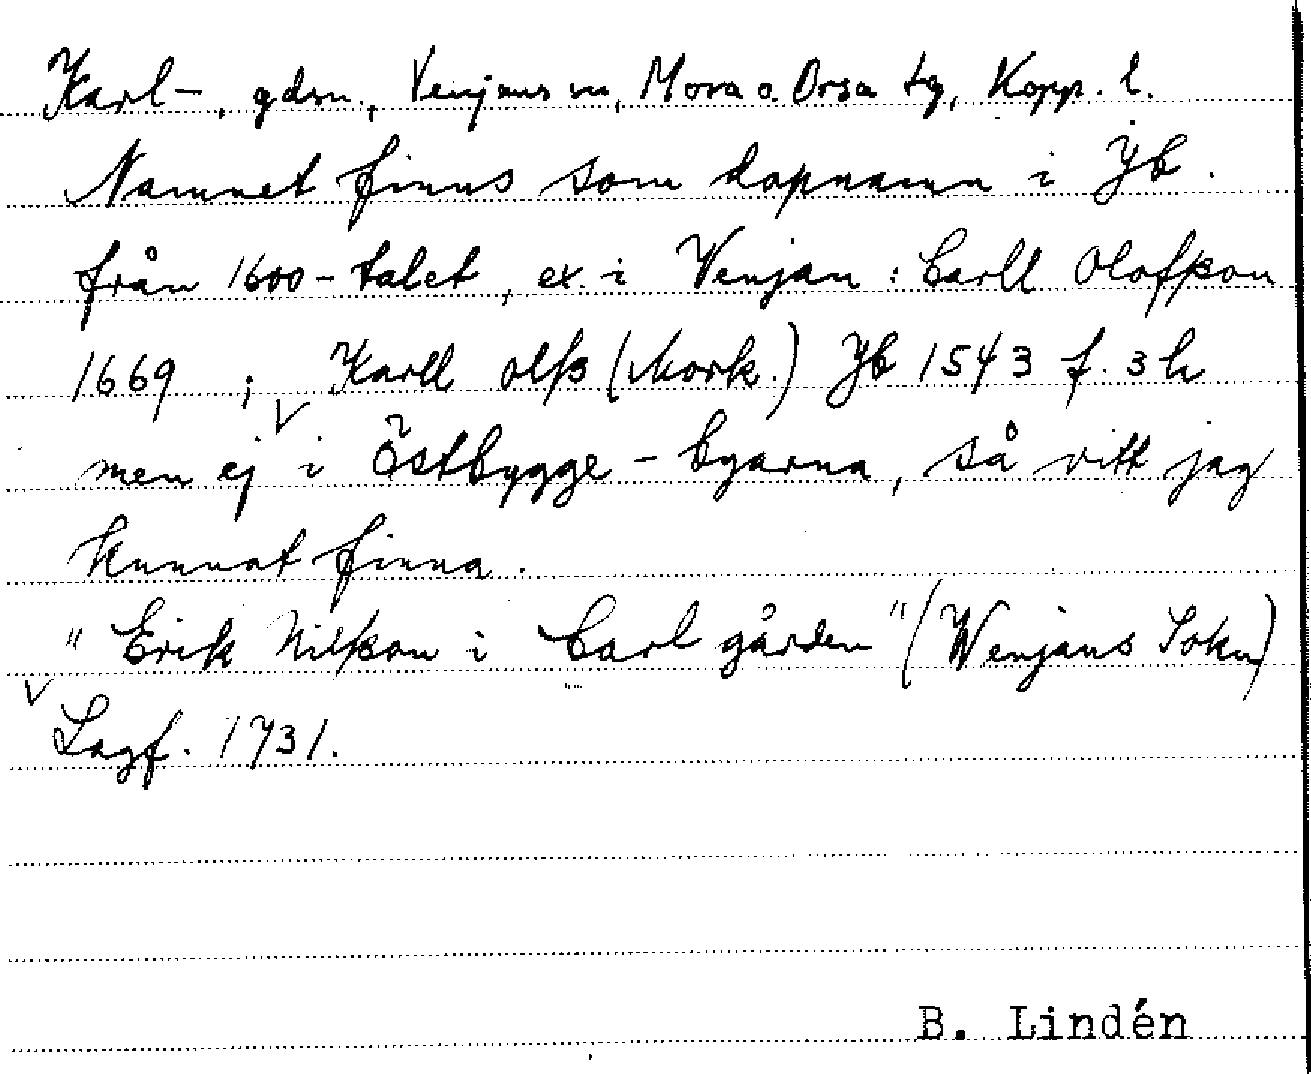 Karl-, gdsn., Venjans sn, Mora o. Orsa tg, Kopp. l.
Namnet finns som dopnamn i Jb.
från 1600-talet, ex. i Venjan: Carll Olofßon
1669 ; Karll olß (Mork.) Jb 1543 f. 3 h
men ej i Östbygge-byarna, så vitt jag
kunnat finna.
"Erik Nilßon i Carl gården" (Wenjans Sokn)
Lagf. 1731.
B. Lindén